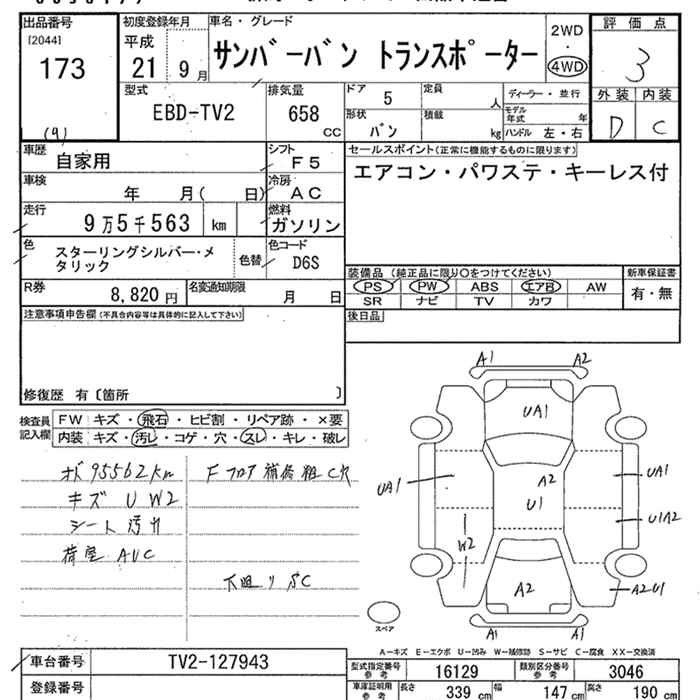 出品番号
[2044]
173
(9)
初度登録年月
平成
21 9月
車名・グレード
サンバーバン トランスポーター
2WD
・
4WD
評価点
3
外装 内装
D C
型式
EBD-TV2
排気量
658
CC
ドア 5
形状 バン
定員 人
積載 kg
ディーラー・並行
モデル年式 年
ハンドル 左・右
車歴
自家用
シフト
F5
セールスポイント(正常に機能するものに限ります)
エアコン・パワステ・キーレス付
車検
年 月( 日)
冷房
AC
走行
9万5千563 km
燃料
ガソリン
色
スターリングシルバー・メ
タリック
色替
色コード
D6S
装備品 (純正品に限り○をつけてください)
PS PW ABS エアB AW
SR ナビ TV カワ
新車保証書
有・無
R券
8,820円
名変通知期限
月 日
後日品
注意事項申告欄(不具合内容等は具体的に記入して下さい)
修復歴 有〔箇所 〕
検査員
記入欄
FW キズ・飛石・ヒビ割・リペア跡・×要
内装 キズ・汚レ・コゲ・穴・スレ・キレ・破レ
95562km
キズ U W2
シート汚れ
荷室 AUC
Fフロア補修粗C穴
下廻りSC
A1 A2
UA1
UA1
A2
U1
UA1
U1A2
W2
A2
A2U1
A1 A1
スペア
A-キズ E-エクボ U-凹み W-補修跡 S-サビ C-腐食 XX-交換済
車台番号
TV2-127943
登録番号
型式指定番号
参考
16129
類別区分番号
参考
3046
車庫証明用
参考
長さ 339 cm
幅 147 cm
高さ 190 cm